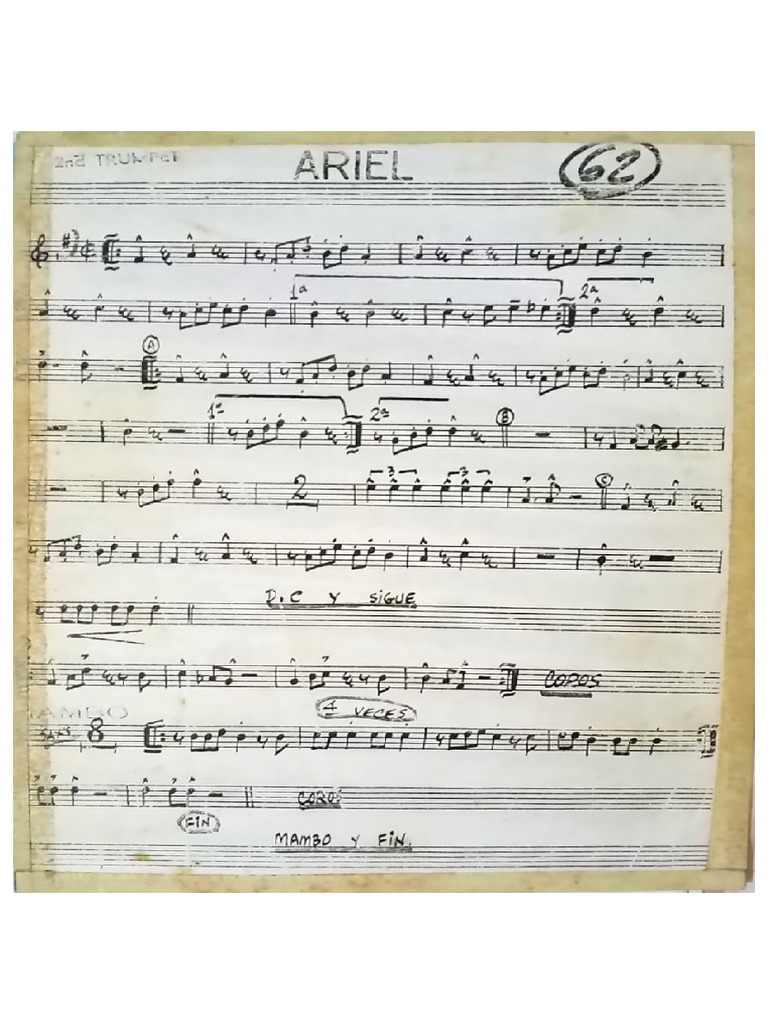 2nd TRUMPET ARIEL 62
1ª 2ª
A
1ª 2ª B
2 3 3 C
D.C Y SIGUE
COROS
MAMBO 4 VECES
8
COROS
FIN
MAMBO Y FIN.